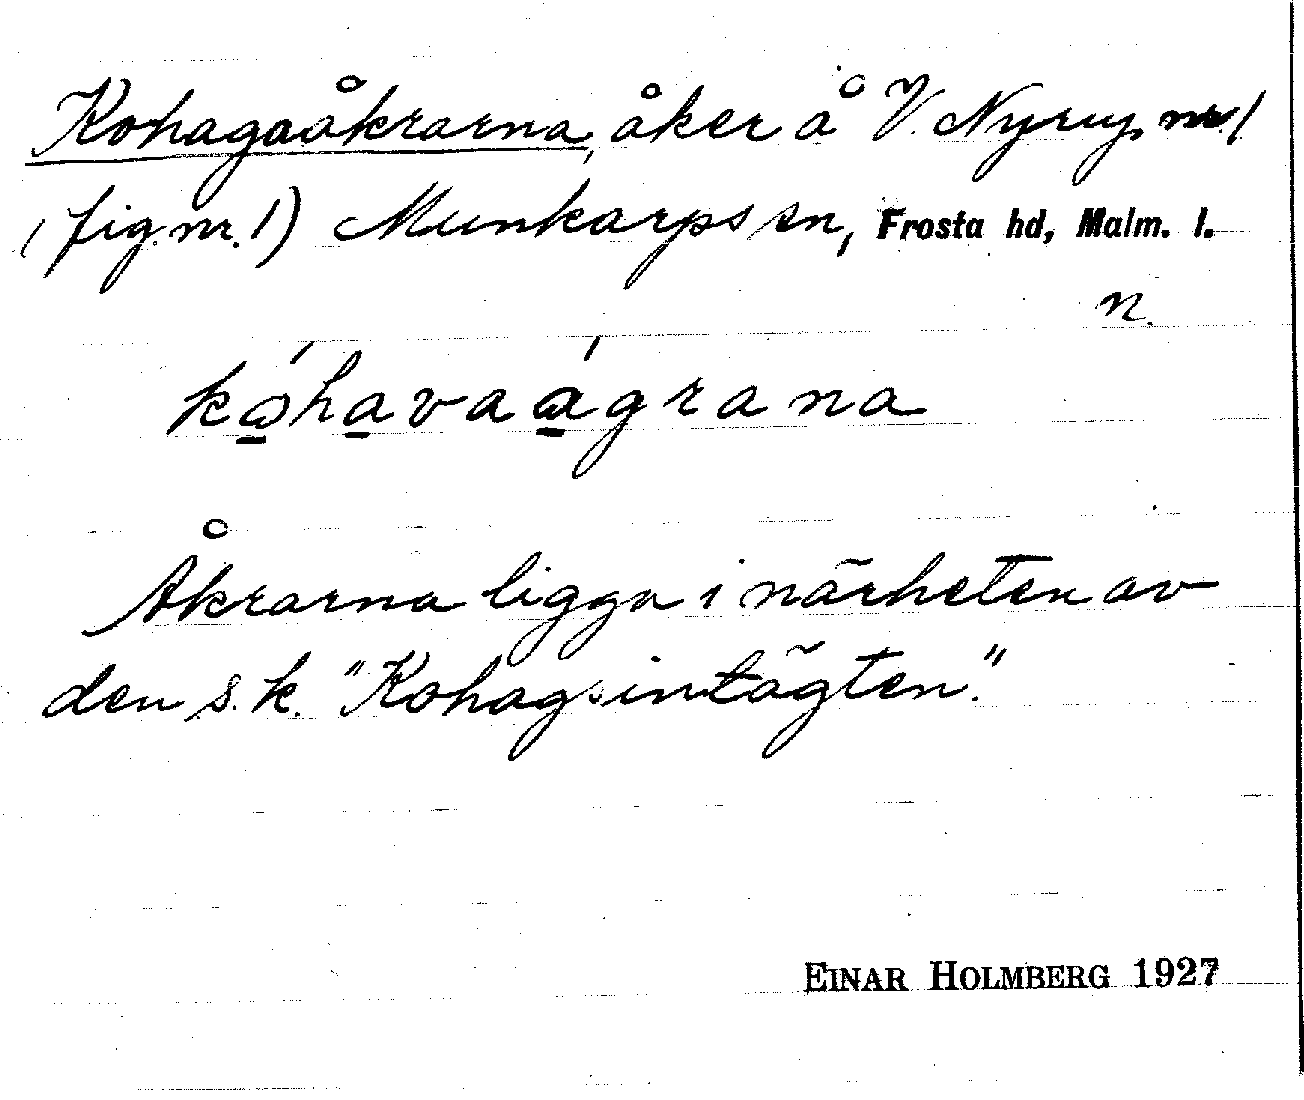 Kohagaåkrarna, åker å V. Nyrup nr 1
(fig. nr. 1) Munkarps sn, Frosta hd, Malm. l.
n.
kåhavaågrana
Åkrarna ligga i närheten av
den s.k. "Kohagsintägten."
EINAR HOLMBERG 1927